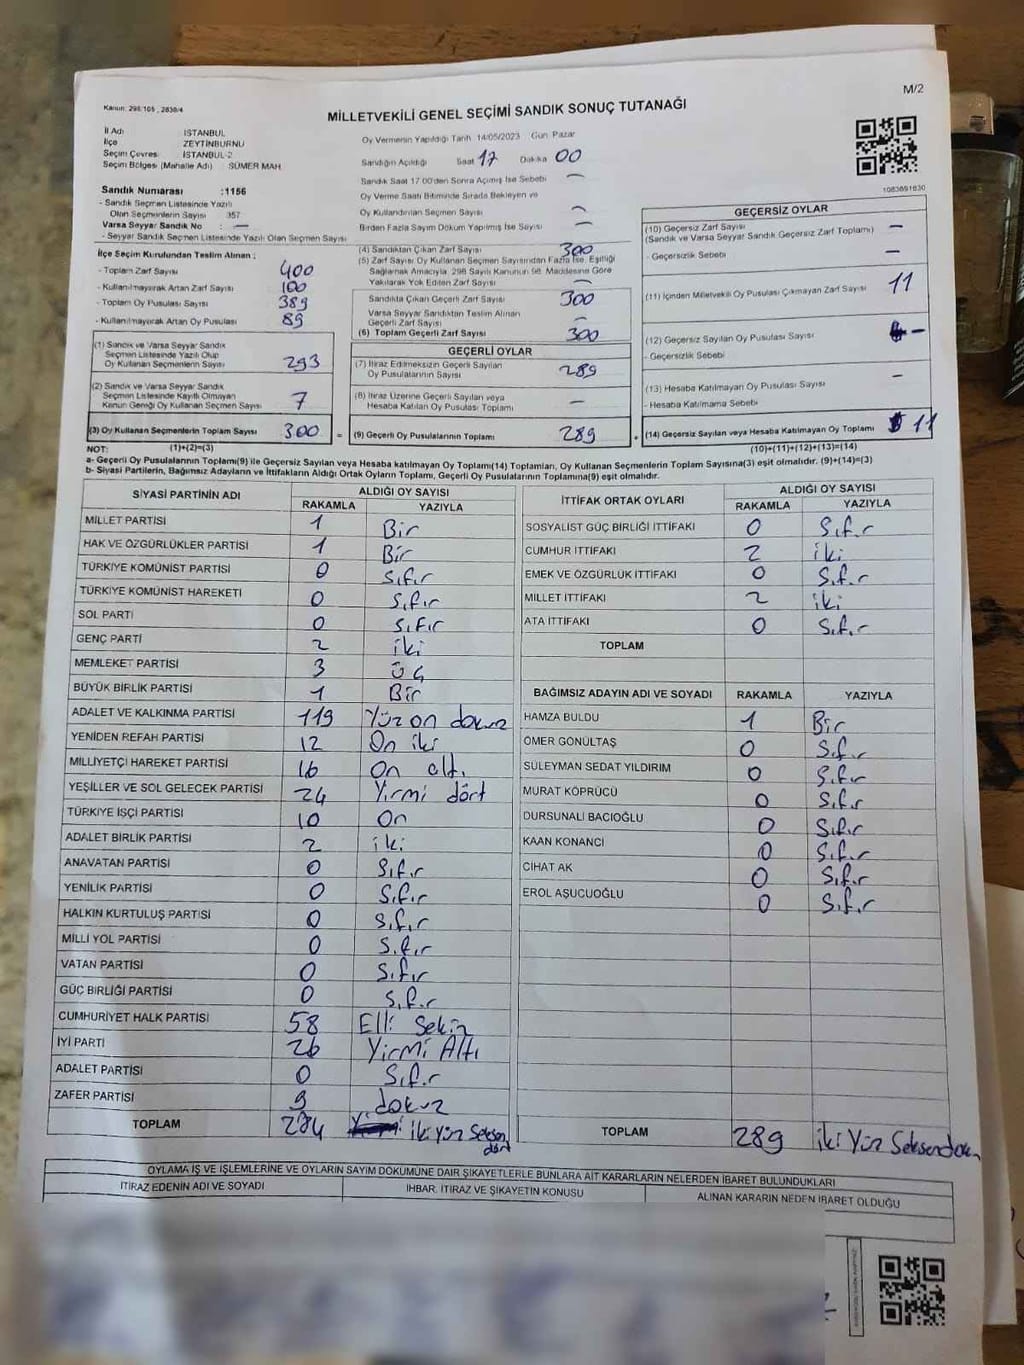 M/2
Kanun: 298/105 , 2839/4
MİLLETVEKİLİ GENEL SEÇİMİ SANDIK SONUÇ TUTANAĞI
İl Adı İSTANBUL
İlçe ZEYTİNBURNU
Seçim Çevres İSTANBUL-2
Seçim Bölges (Mahalle Adı) SÜMER MAH.
Sandık Numarası :1156
- Sandık Seçmen Listesinde Yazılı
Olan Seçmenlerin Sayısı 357
Varsa Seyyar Sandık No : —
- Seyyar Sandık Seçmen Listesinde Yazılı Olan Seçmen Sayısı
Oy Vermenin Yapıldığı Tarih 14/05/2023 Gün Pazar
Sandığın Açıldığı Saat 17 Dakika 00
Sandık Saat 17.00'den Sonra Açılmış İse Sebebi —
Oy Verme Saati Bitiminde Sırada Bekleyen ve
Oy Kullandırılan Seçmen Sayısı —
Birden Fazla Sayım Döküm Yapılmış İse Sayısı —
1083691830
İlçe Seçim Kurulundan Teslim Alınan :
- Toplam Zarf Sayısı 400
- Kullanılmayarak Artan Zarf Sayısı 100
- Toplam Oy Pusulası Sayısı 389
- Kullanılmayarak Artan Oy Pusulası 89
(1) Sandık ve Varsa Seyyar Sandık
Seçmen Listesinde Yazılı Olup
Oy Kullanan Seçmenlerin Sayısı 293
(2) Sandık ve Varsa Seyyar Sandık
Seçmen Listesinde Kayıtlı Olmayan
Kanun Gereği Oy Kullanan Seçmen Sayısı 7
(3) Oy Kullanan Seçmenlerin Toplam Sayısı 300
(4) Sandıktan Çıkan Zarf Sayısı 300
(5) Zarf Sayısı Oy Kullanan Seçmen Sayısından Fazla İse, Eşitliği
Sağlamak Amacıyla, 298 Sayılı Kanunun 98. Maddesine Göre
Yakılarak Yok Edilen Zarf Sayısı —
Sandıkta Çıkan Geçerli Zarf Sayısı 300
Varsa Seyyar Sandıktan Teslim Alınan
Geçerli Zarf Sayısı —
(6) Toplam Geçerli Zarf Sayısı 300
GEÇERLİ OYLAR
(7) İtiraz Edilmeksizin Geçerli Sayılan
Oy Pusulalarının Sayısı 289
(8) İtiraz Üzerine Geçerli Sayılan veya
Hesaba Katılan Oy Pusulası Toplamı —
= (9) Geçerli Oy Pusulalarının Toplamı 289
GEÇERSİZ OYLAR
(10) Geçersiz Zarf Sayısı —
(Sandık ve Varsa Seyyar Sandık Geçersiz Zarf Toplamı)
- Geçersizlik Sebebi —
(11) İçinden Milletvekili Oy Pusulası Çıkmayan Zarf Sayısı 11
(12) Geçersiz Sayılan Oy Pusulası Sayısı —
- Geçersizlik Sebebi
(13) Hesaba Katılmayan Oy Pusulası Sayısı —
- Hesaba Katılmama Sebebi
+ (14) Geçersiz Sayılan veya Hesaba Katılmayan Oy Toplamı 11
NOT: (1)+(2)=(3) (10)+(11)+(12)+(13)=(14)
a- Geçerli Oy Pusulaları Toplamı(9) ile Geçersiz Sayılan veya Hesaba katılmayan Oy Toplamı(14) Toplamları, Oy Kullanan Seçmenlerin Toplam Sayısına(3) eşit olmalıdır. (9)+(14)=(3)
b- Siyasi Partilerin, Bağımsız Adayların ve İttifakların Aldığı Ortak Oyların Toplamı, Geçerli Oy Pusulalarının Toplamına(9) eşit olmalıdır.
SİYASİ PARTİNİN ADI ALDIĞI OY SAYISI
RAKAMLA YAZIYLA
MİLLET PARTİSİ 1 Bir
HAK VE ÖZGÜRLÜKLER PARTİSİ 1 Bir
TÜRKİYE KOMÜNİST PARTİSİ 0 Sıfır
TÜRKİYE KOMÜNİST HAREKETİ 0 Sıfır
SOL PARTİ 0 Sıfır
GENÇ PARTİ 2 iki
MEMLEKET PARTİSİ 3 üç
BÜYÜK BİRLİK PARTİSİ 1 Bir
ADALET VE KALKINMA PARTİSİ 119 Yüz on dokuz
YENİDEN REFAH PARTİSİ 12 On iki
MİLLİYETÇİ HAREKET PARTİSİ 16 On altı
YEŞİLLER VE SOL GELECEK PARTİSİ 24 Yirmi dört
TÜRKİYE İŞÇİ PARTİSİ 10 On
ADALET BİRLİK PARTİSİ 2 iki
ANAVATAN PARTİSİ 0 Sıfır
YENİLİK PARTİSİ 0 Sıfır
HALKIN KURTULUŞ PARTİSİ 0 Sıfır
MİLLİ YOL PARTİSİ 0 Sıfır
VATAN PARTİSİ 0 Sıfır
GÜÇ BİRLİĞİ PARTİSİ 0 Sıfır
CUMHURİYET HALK PARTİSİ 58 Elli Sekiz
İYİ PARTİ 26 Yirmi Altı
ADALET PARTİSİ 0 Sıfır
ZAFER PARTİSİ 9 dokuz
TOPLAM 284 iki Yüz Seksen dört
İTTİFAK ORTAK OYLARI ALDIĞI OY SAYISI
RAKAMLA YAZIYLA
SOSYALİST GÜÇ BİRLİĞİ İTTİFAKI 0 Sıfır
CUMHUR İTTİFAKI 2 iki
EMEK VE ÖZGÜRLÜK İTTİFAKI 0 Sıfır
MİLLET İTTİFAKI 2 iki
ATA İTTİFAKI 0 Sıfır
TOPLAM
BAĞIMSIZ ADAYIN ADI VE SOYADI RAKAMLA YAZIYLA
HAMZA BULDU 1 Bir
ÖMER GÖNÜLTAŞ 0 Sıfır
SÜLEYMAN SEDAT YILDIRIM 0 Sıfır
MURAT KÖPRÜCÜ 0 Sıfır
DURSUNALİ BACIOĞLU 0 Sıfır
KAAN KONANCİ 0 Sıfır
CİHAT AK 0 Sıfır
EROL AŞUCUOĞLU 0 Sıfır
TOPLAM 289 iki Yüz Seksendokuz
OYLAMA İŞ VE İŞLEMLERİNE VE OYLARIN SAYIM DÖKÜMÜNE DAİR ŞİKAYETLERLE BUNLARA AİT KARARLARIN NELERDEN İBARET BULUNDUKLARI
İTİRAZ EDENİN ADI VE SOYADI İHBAR, İTİRAZ VE ŞİKAYETİN KONUSU ALINAN KARARIN NEDEN İBARET OLDUĞU